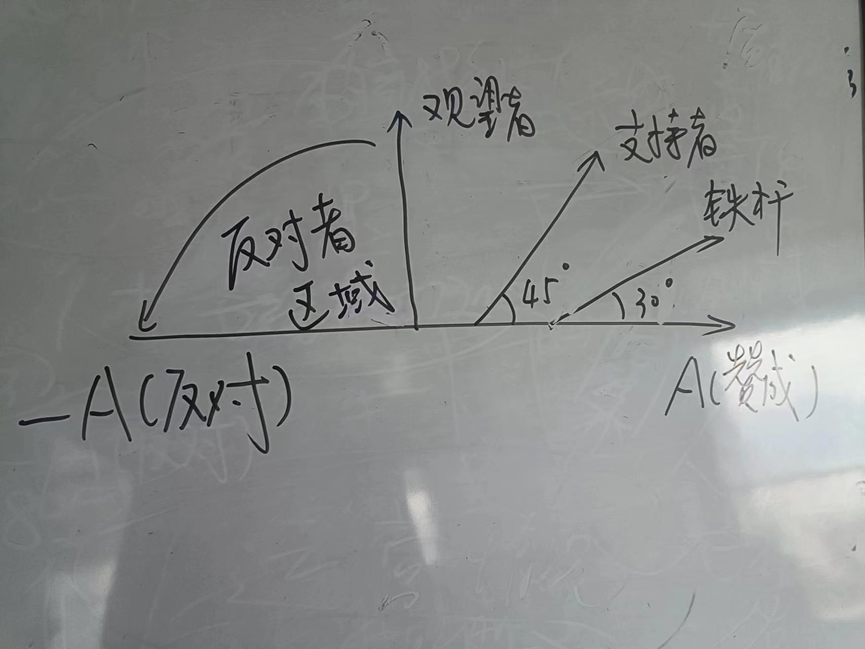 观望者
支持者
铁杆
反对者
区域
45°
30°
-A(反对)
A(赞成)